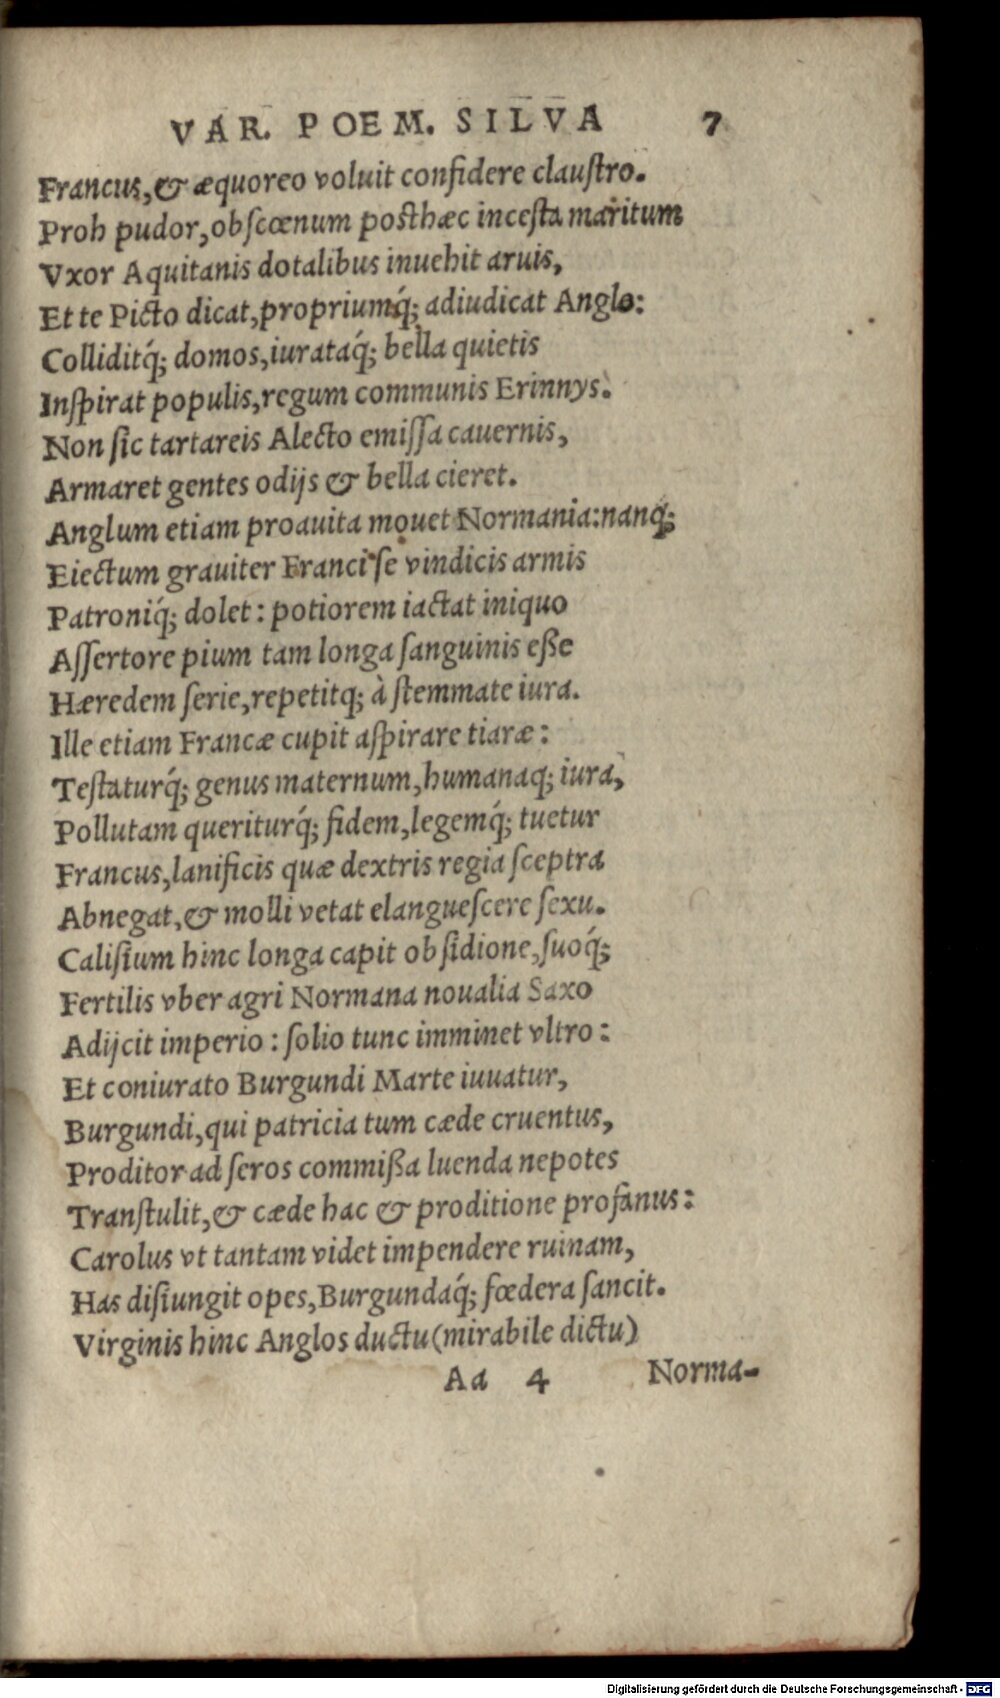 VAR. POEM. SILVA 7
Francus,& æquoreo voluit confidere clauſtro.
Proh pudor,obſcœnum posthæc inceſta maritum
Vxor Aquitanis dotalibus inuehit aruis,
Et te Picto dicat,propriumq́; adiudicat Anglo:
Colliditq́; domos,iurataq́; bella quietis
Inſpirat populis,regum communis Erinnys.
Non ſic tartareis Alecto emiſſa cauernis,
Armaret gentes odijs & bella cieret.
Anglum etiam proauita mouet Normania:nanq́;
Eiectum grauiter Franci ſe vindicis armis
Patroniq́; dolet: potiorem iactat iniquo
Aſſertore pium tam longa ſanguinis eße
Hæredem ſerie,repetitq; à ſtemmate iura.
Ille etiam Francæ cupit aſpirare tiaræ:
Teſtaturq́; genus maternum,humanaq; iura,
Pollutam queriturq́; fidem,legemq́; tuetur
Francus,lanificis quæ dextris regia ſceptra
Abnegat,& molli vetat elangueſcere ſexu.
Caliſium hinc longa capit obſidione,ſuoq́;
Fertilis vber agri Normana noualia Saxo
Adijcit imperio: ſolio tunc imminet vltro:
Et coniurato Burgundi Marte iuuatur,
Burgundi,qui patricia tum cæde cruentus,
Proditor ad ſeros commißa luenda nepotes
Tranſtulit,& cæde hac & proditione profanus:
Carolus vt tantam videt impendere ruinam,
Has diſiungit opes,Burgundaq́; fœdera ſancit.
Virginis hinc Anglos ductu(mirabile dictu)
Aa 4 Norma-
Digitalisierung gefördert durch die Deutsche Forschungsgemeinschaft - DFG